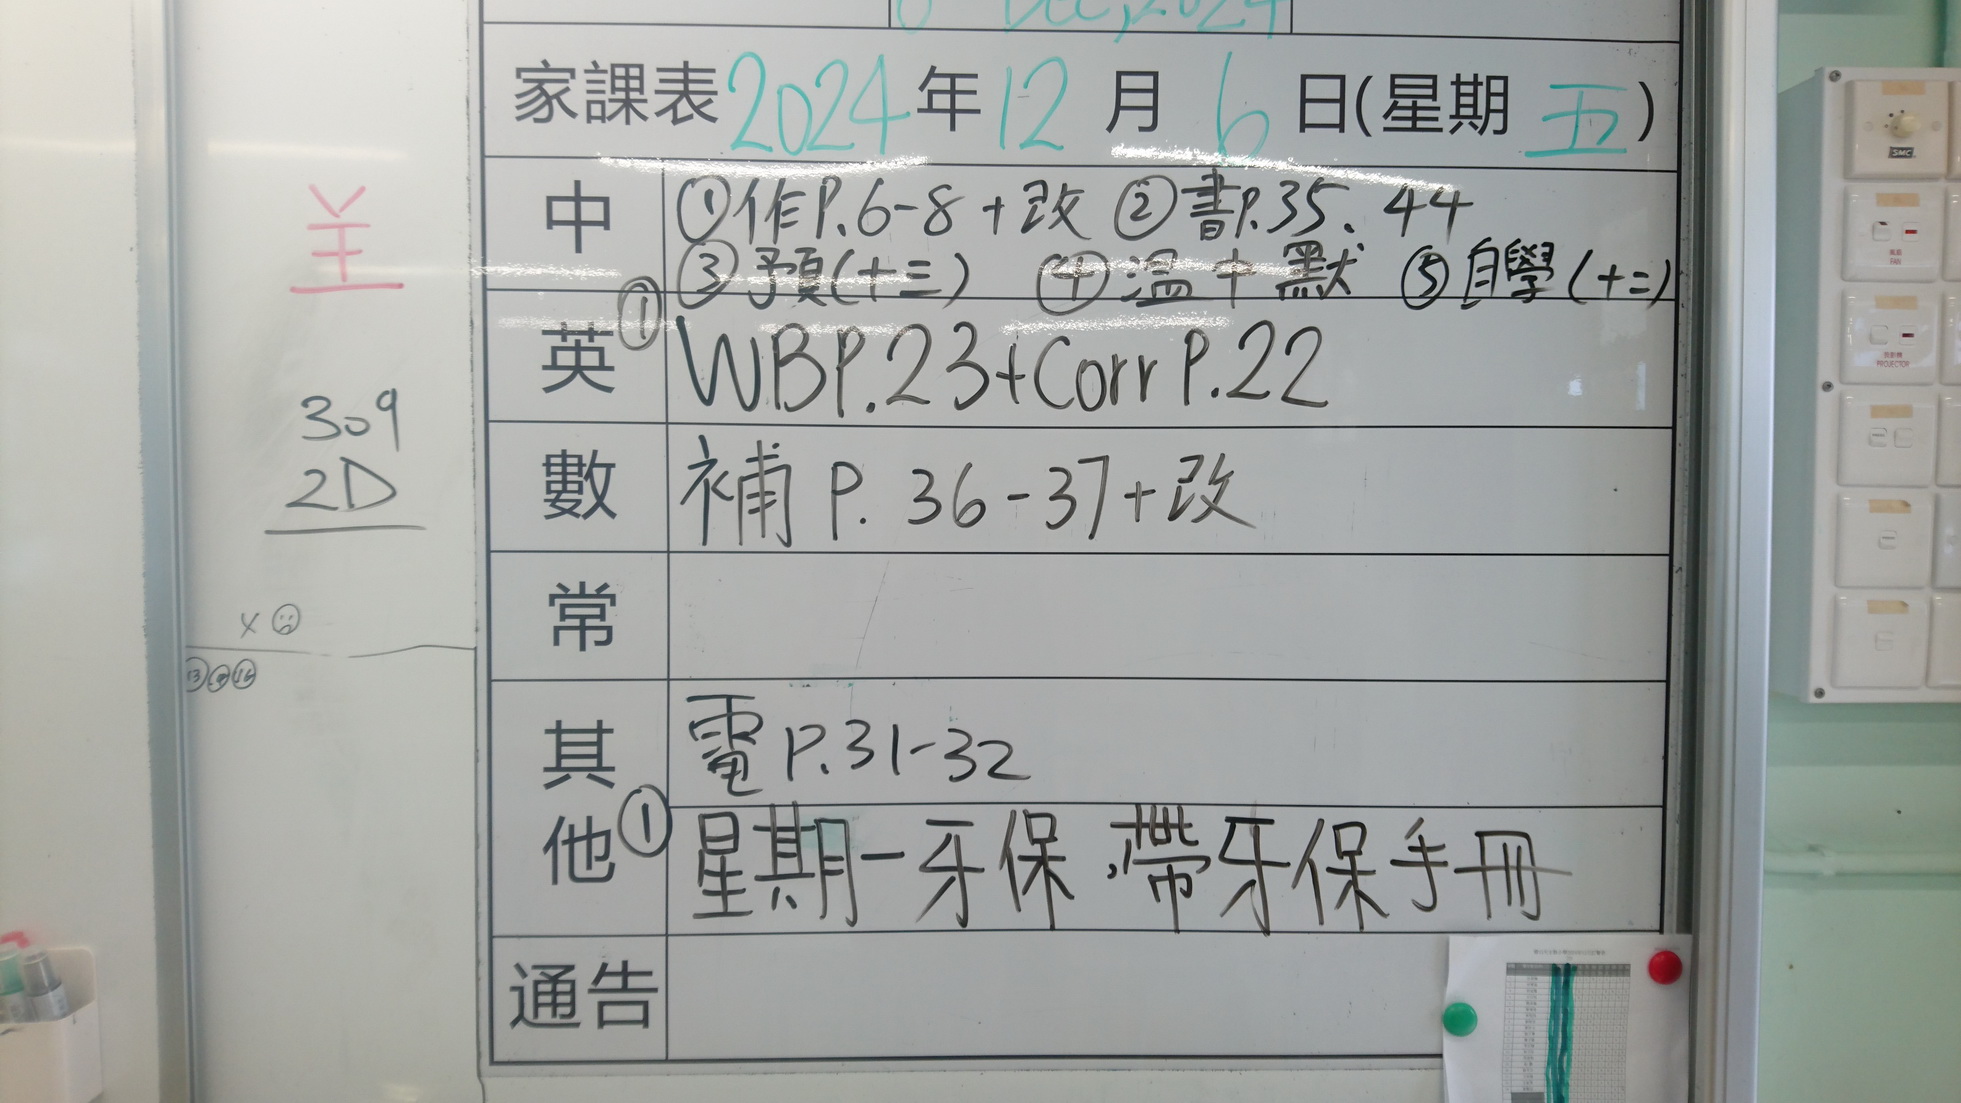 6 Dec, 2024
家課表 2024 年 12 月 6 日(星期 五)
中
①作P.6-8+改 ②書P.35、44
③預(十三) ④溫中默 ⑤自學(十二)
英①
WBP.23+Corr P.22
數
補 P. 36-37+改
常
其他①
電 P.31-32
星期一牙保,帶牙保手冊
通告
309
2D
x
⑬⑨⑯
SMC
FAN
PROJECTOR